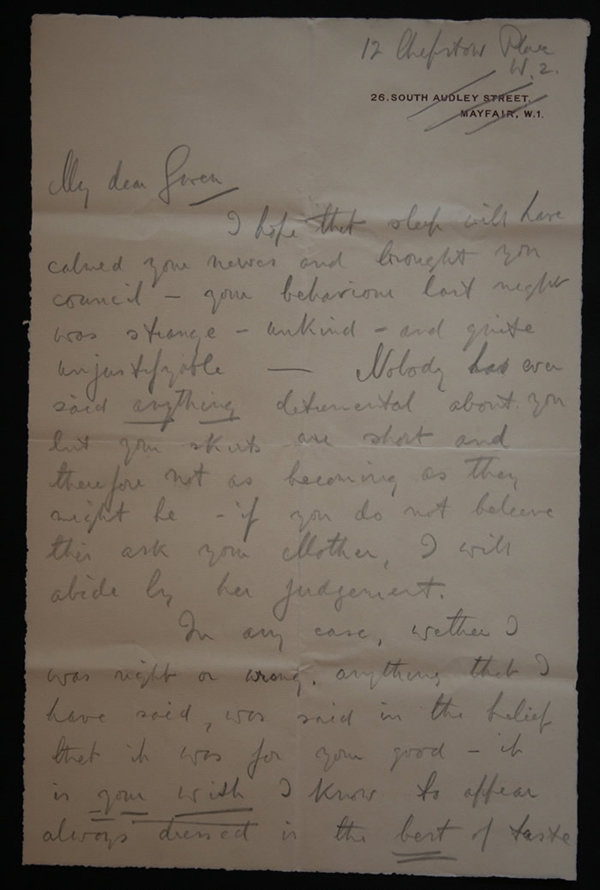 12 Chepstow Place
W.2.
26. SOUTH AUDLEY STREET.
MAYFAIR, W.1.
My dear Gwen
I hope that sleep will have
calmed your nerves and brought you
council – your behaviour last night
was strange – unkind – and quite
unjustifyable — Nobody has ever
said anything detremental about you
but your skirts are short and
therefore not as becoming as they
might be – if you do not beleive
this ask your Mother, I will
abide by her judgement.
In any case, wether I
was right or wrong, anything that I
have said, was said in the belief
that it was for your good – it
is your wish I know to appear
always dressed in the best of taste